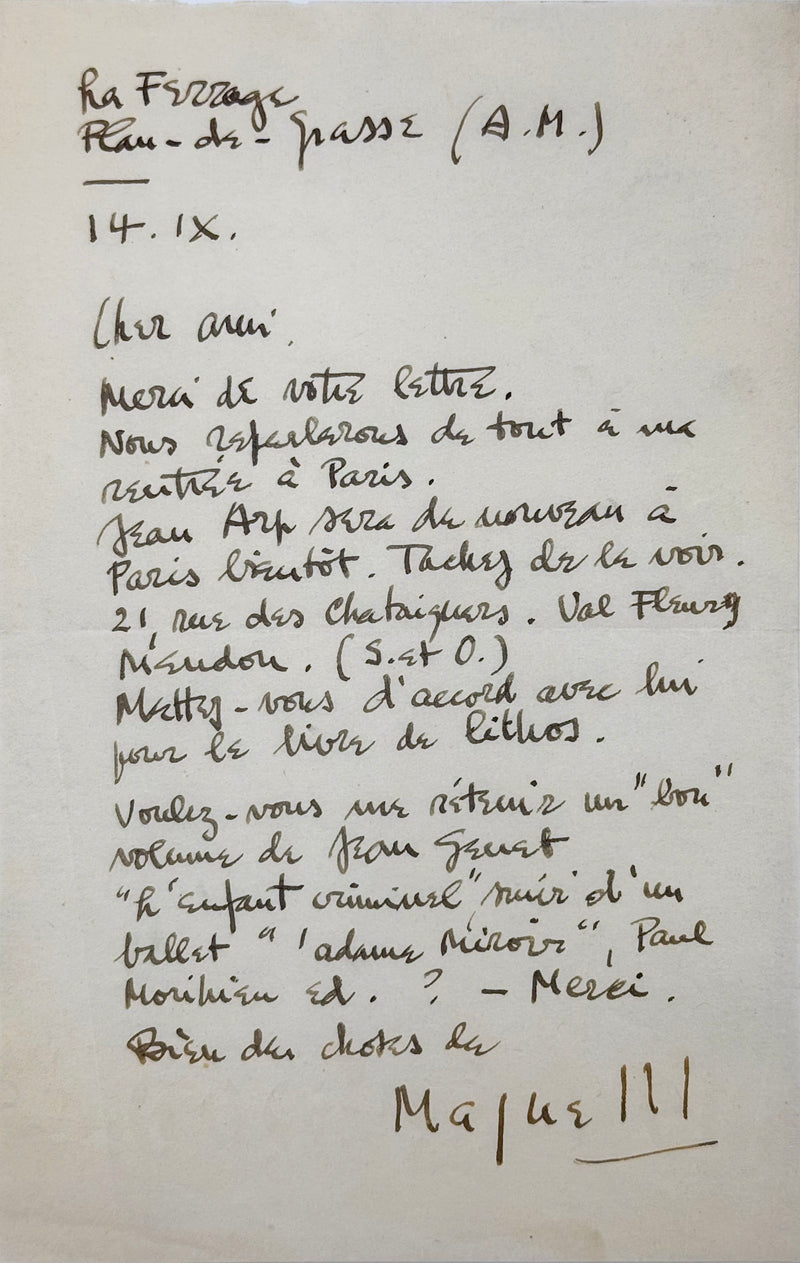 La Ferrage
Plan-de-Grasse (A.M.)
14.IX.
Cher ami,
Merci de votre lettre.
Nous reparlerons de tout à ma
rentrée à Paris.
Jean Arp sera de nouveau à
Paris bientôt. Tachez de le voir.
21, rue des Chataigners. Val Fleury
Meudon. (S. et O.)
Mettez-vous d'accord avec lui
pour le livre de lithos.
Voulez-vous me rétenir un "bon"
volume de Jean Genet
"L'enfant criminel", suivi d'un
ballet " 'adame Miroir", Paul
Morihien ed. ? - Merci.
Bien des choses de
Magnelli